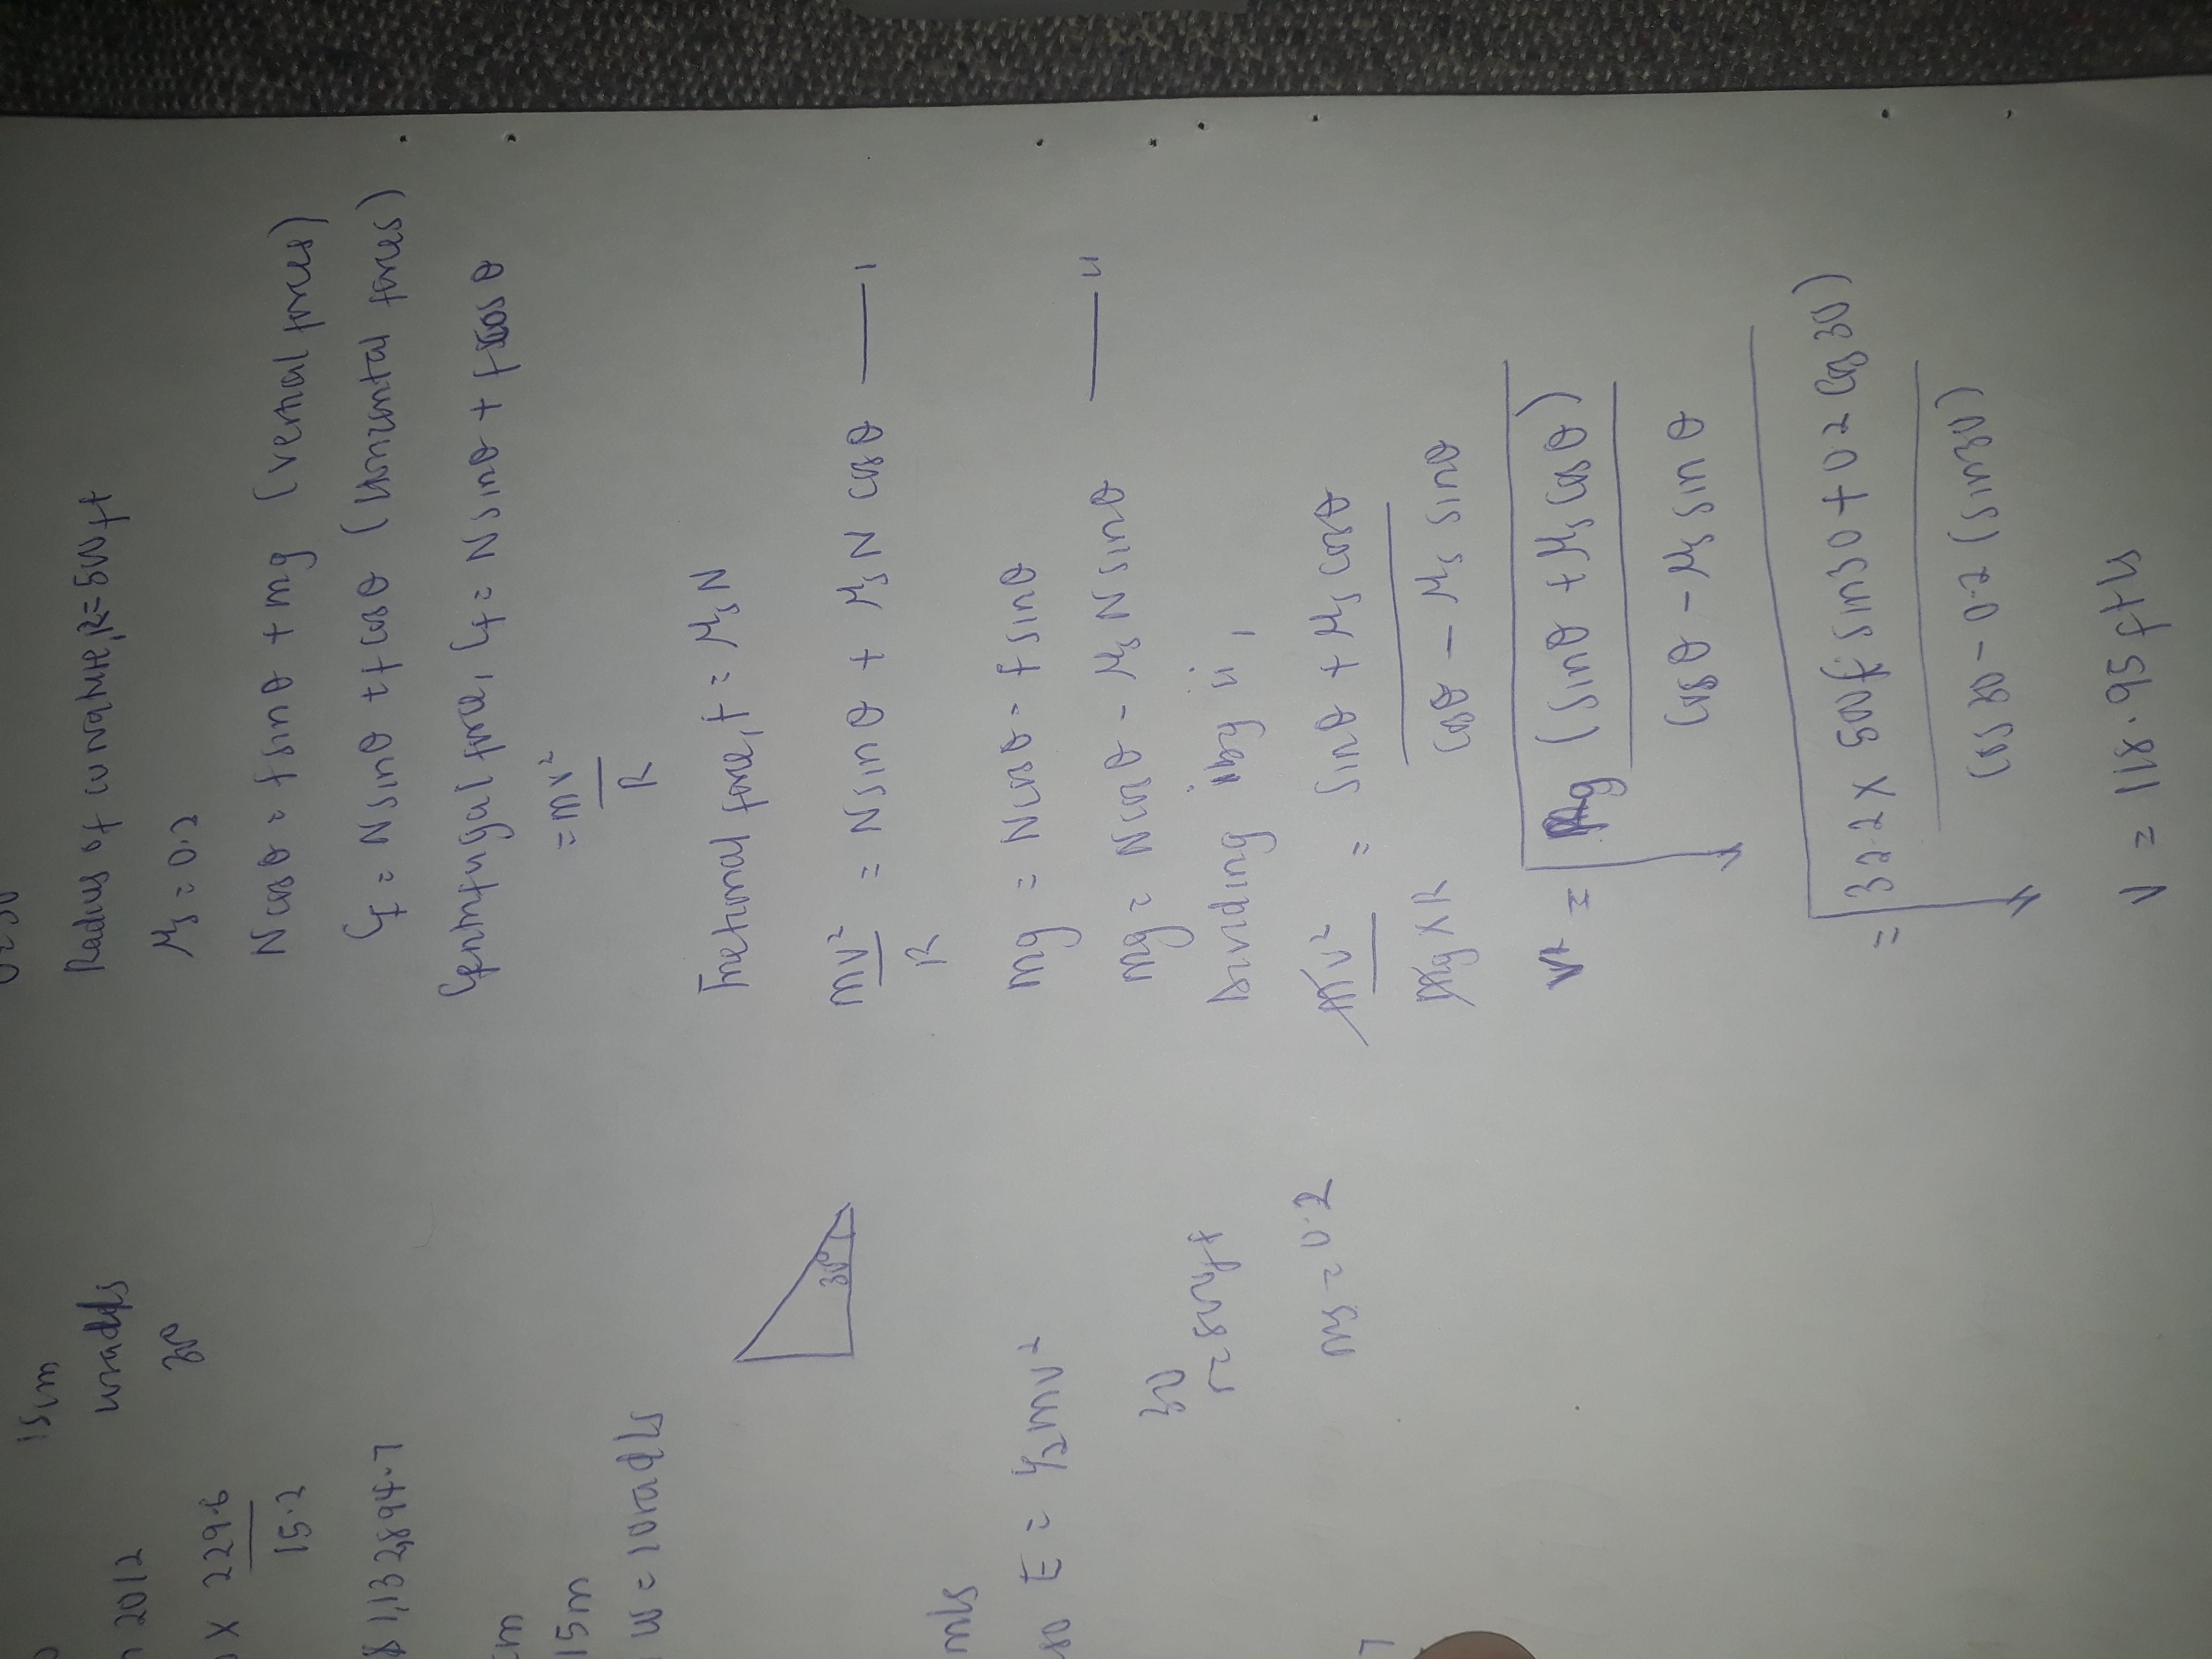 15m
uradls
30
n 2012
X 229.6
15.2
$ 1,132,894.7
cm
15m
w = 10radls
30°
mls
E = 1/2mv²
30
r = 500ft
ms = 0.2
θ = 30
Radius of curvature, R = 500ft
μs = 0.2
N cos θ = f sin θ + mg (vertical forces)
Cf = N sin θ + f cos θ (Horizontal forces)
Centrifugal force, Cf = N sin θ + f cos θ
= mv²
R
Frictional force, f = μs N
mv² = N sin θ + μs N cos θ — 1
R
mg = N cos θ - f sin θ
mg = N cos θ - μs N sin θ — 11
Dividing i by ii,
mv² = sin θ + μs cos θ
mg x R cos θ - μs sin θ
V = √ Rg (sin θ + μs cos θ)
cos θ - μs sin θ
= √ 32.2 X 500 (sin 30 + 0.2 cos 30)
cos 30 - 0.2 (sin 30)
V = 118.95 ft/s